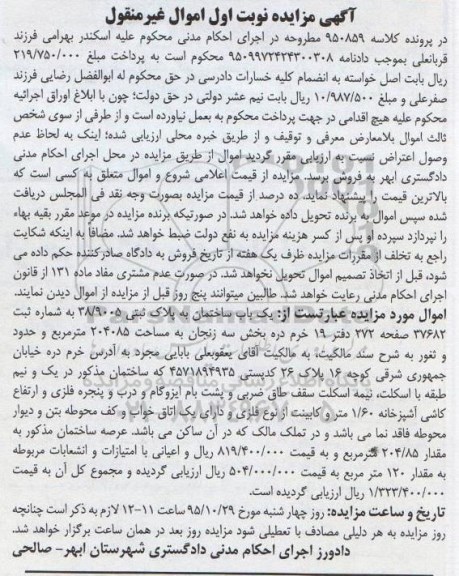 آگهی مزایده نوبت اول اموال غیرمنقول
در پرونده کلاسه ۹۵۰۸۵۹ مطروحه در اجرای احکام مدنی محکوم علیه اسکندر بهرامی فرزند
قربانعلی بموجب دادنامه ۹۵۰۹۹۷۲۴۲۴۳۰۰۳۰۸ محکوم است به پرداخت مبلغ ۲۱۹/۷۵۰/۰۰۰
ریال بابت اصل خواسته به انضمام کلیه خسارات دادرسی در حق محکوم له ابوالفضل رضایی فرزند
صفرعلی و مبلغ ۱۰/۹۸۷/۵۰۰ ریال بابت نیم عشر دولتی در حق دولت؛ چون با ابلاغ اوراق اجرائیه
محکوم علیه هیچ اقدامی در جهت پرداخت محکوم به بعمل نیاورده است و از طرفی از سوی شخص
ثالث اموال بلامعارض معرفی و توقیف و از طریق خبره محلی ارزیابی شده؛ اینک به لحاظ عدم
وصول اعتراض نسبت به ارزیابی مقرر گردید اموال از طریق مزایده در محل اجرای احکام مدنی
دادگستری ابهر به فروش برسد. مزایده از قیمت اعلامی شروع و اموال متعلق به کسی است که
بالاترین قیمت را پیشنهاد نماید. ده درصد از قیمت مزایده بصورت وجه نقد فی المجلس دریافت
شده سپس اموال به برنده تحویل داده خواهد شد. در صورتیکه برنده مزایده در موعد مقرر بقیه بهاء
را نپردازد سپرده او پس از کسر هزینه مزایده به نفع دولت ضبط خواهد شد. مضافا به اینکه شکایت
راجع به تخلف از مقررات مزایده ظرف یک هفته از تاریخ فروش به دادگاه صادرکننده حکم داده می
شود، قبل از اتخاذ تصمیم اموال تحویل نخواهد شد. در صورت عدم مشتری مفاد ماده ۱۳۱ از قانون
اجرای احکام مدنی رعایت خواهد شد. طالبین میتوانند پنج روز قبل از مزایده از اموال دیدن نمایند.
اموال مورد مزایده عبارتست از: یک باب ساختمان به پلاک ثبتی ۳۸/۹۰۰۵ به شماره ثبت
۳۷۶۸۲ صفحه ۲۷۲ دفتر ۱۹ خرم دره بخش سه زنجان به مساحت ۲۰۴۰۸۵ مترمربع و حدود
و ثغور به شرح سند مالکیت، به مالکیت آقای یعقوبعلی بابایی مجرد به آدرس خرم دره خیابان
جمهوری شرقی کوچه ۱۶ پلاک ۲۶ کدپستی ۴۵۷۱۸۹۴۹۳۵ که ساختمان مذکور در یک و نیم
طبقه با اسکلت، نیمه اسکلت سقف طاق ضربی و پشت بام ایزوگام و درب و پنجره فلزی و ارتفاع
کاشی آشپزخانه ۱/۶۰ متر و کابینت از نوع فلزی و دارای یک اتاق خواب و کف محوطه بتن و دیوار
محوطه فاقد نما می باشد و در تملک مالک که در آن ساکن می باشد. عرصه ساختمان مذکور به
مقدار ۲۰۴/۸۵ مترمربع و به قیمت ۸۱۹/۴۰۰/۰۰۰ ریال و اعیانی با امتیازات و انشعابات مربوطه
به مقدار ۱۲۰ متر مربع به قیمت ۵۰۴/۰۰۰/۰۰۰ ریال ارزیابی گردیده و مجموع کل آن به قیمت
۱/۳۲۳/۴۰۰/۰۰۰ ریال ارزیابی گردیده است.
تاریخ و ساعت مزایده: روز چهار شنبه مورخ ۹۵/۱۰/۲۹ ساعت ۱۱-۱۲ لازم به ذکر است چنانچه
روز مزایده به هر دلیلی مصادف با تعطیلی شود مزایده روز بعد در همان ساعت برگزار خواهد شد.
دادورز اجرای احکام مدنی دادگستری شهرستان ابهر- صالحی